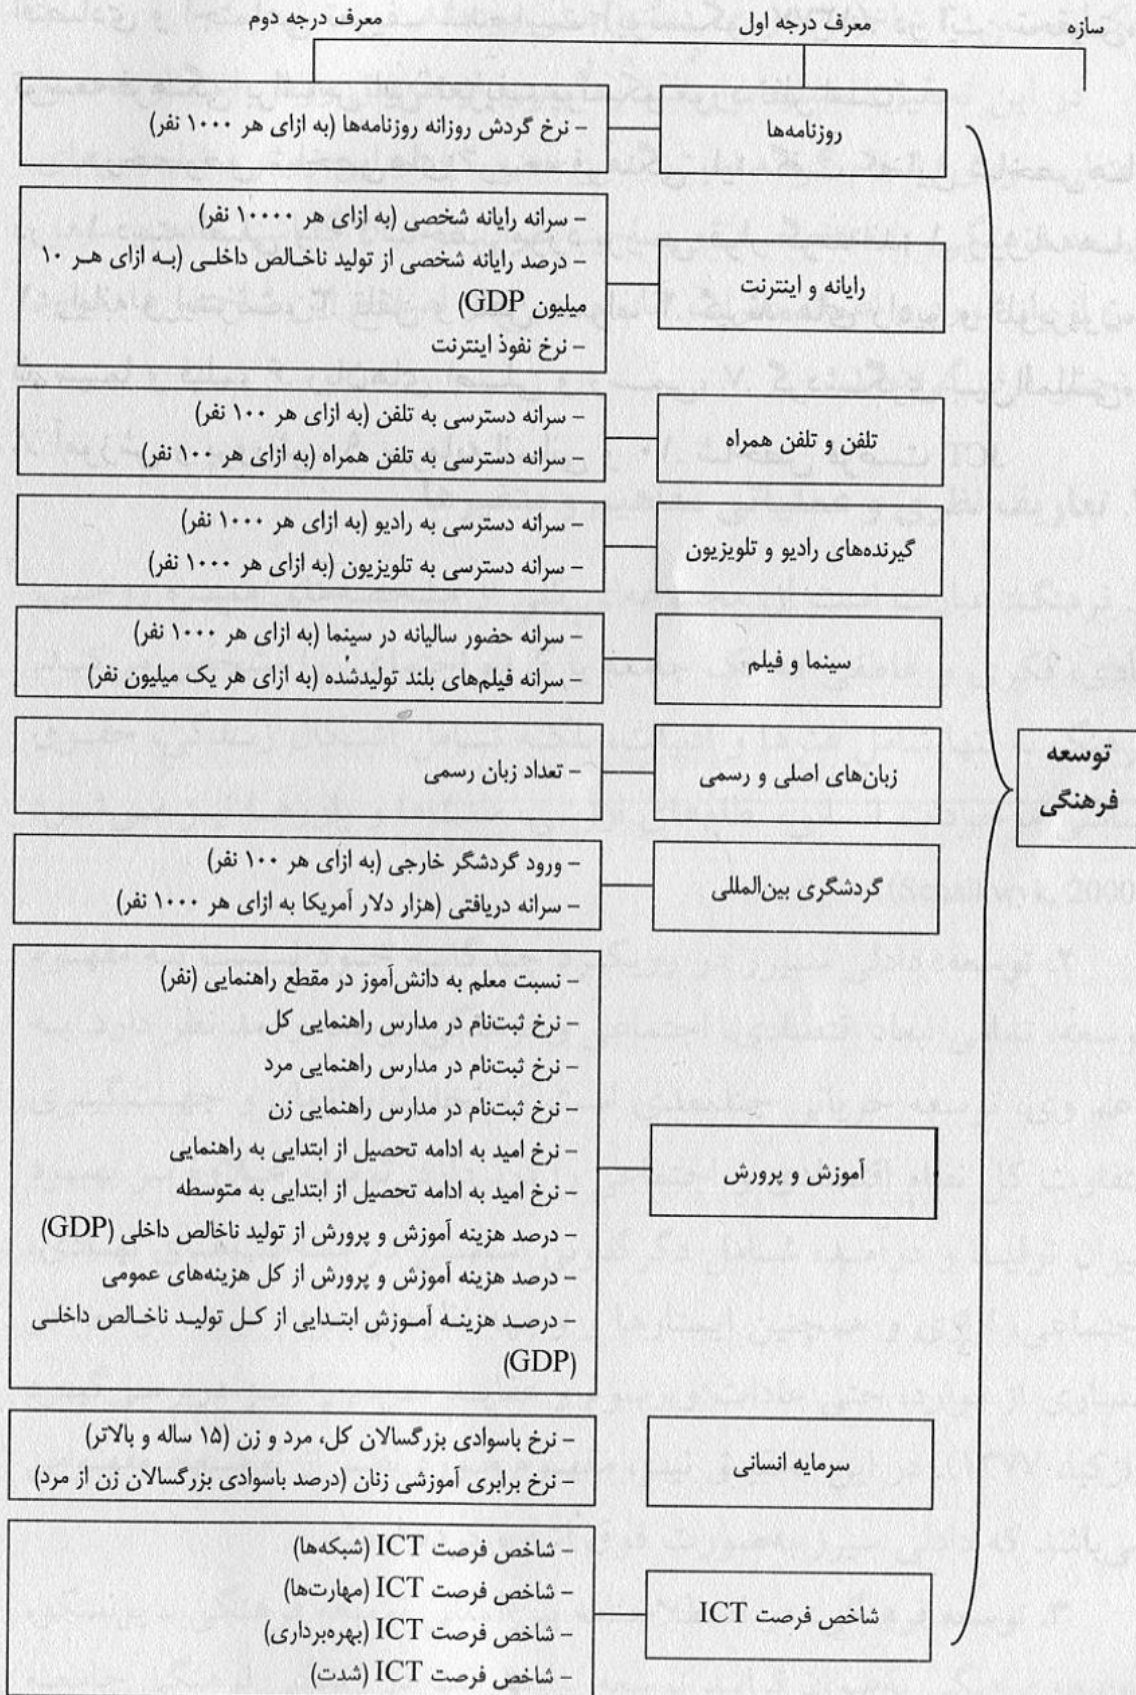 سازه
معرف درجه اول
معرف درجه دوم
توسعه
فرهنگی
روزنامه‌ها
– نرخ گردش روزانه روزنامه‌ها (به ازای هر ۱۰۰۰ نفر)
رایانه و اینترنت
– سرانه رایانه شخصی (به ازای هر ۱۰۰۰۰ نفر)
– درصد رایانه شخصی از تولید ناخالص داخلی (به ازای هر ۱۰
میلیون GDP)
– نرخ نفوذ اینترنت
تلفن و تلفن همراه
– سرانه دسترسی به تلفن (به ازای هر ۱۰۰ نفر)
– سرانه دسترسی به تلفن همراه (به ازای هر ۱۰۰ نفر)
گیرنده‌های رادیو و تلویزیون
– سرانه دسترسی به رادیو (به ازای هر ۱۰۰۰ نفر)
– سرانه دسترسی به تلویزیون (به ازای هر ۱۰۰۰ نفر)
سینما و فیلم
– سرانه حضور سالیانه در سینما (به ازای هر ۱۰۰۰ نفر)
– سرانه فیلم‌های بلند تولیدشده (به ازای هر یک میلیون نفر)
زبان‌های اصلی و رسمی
– تعداد زبان رسمی
گردشگری بین‌المللی
– ورود گردشگر خارجی (به ازای هر ۱۰۰ نفر)
– سرانه دریافتی (هزار دلار آمریکا به ازای هر ۱۰۰۰ نفر)
آموزش و پرورش
– نسبت معلم به دانش‌آموز در مقطع راهنمایی (نفر)
– نرخ ثبت‌نام در مدارس راهنمایی کل
– نرخ ثبت‌نام در مدارس راهنمایی مرد
– نرخ ثبت‌نام در مدارس راهنمایی زن
– نرخ امید به ادامه تحصیل از ابتدایی به راهنمایی
– نرخ امید به ادامه تحصیل از ابتدایی به متوسطه
– درصد هزینه آموزش و پرورش از تولید ناخالص داخلی (GDP)
– درصد هزینه آموزش و پرورش از کل هزینه‌های عمومی
– درصد هزینه آموزش ابتدایی از کل تولید ناخالص داخلی
(GDP)
سرمایه انسانی
– نرخ باسوادی بزرگسالان کل، مرد و زن (۱۵ ساله و بالاتر)
– نرخ برابری آموزشی زنان (درصد باسوادی بزرگسالان زن از مرد)
شاخص فرصت ICT
– شاخص فرصت ICT (شبکه‌ها)
– شاخص فرصت ICT (مهارت‌ها)
– شاخص فرصت ICT (بهره‌برداری)
– شاخص فرصت ICT (شدت)